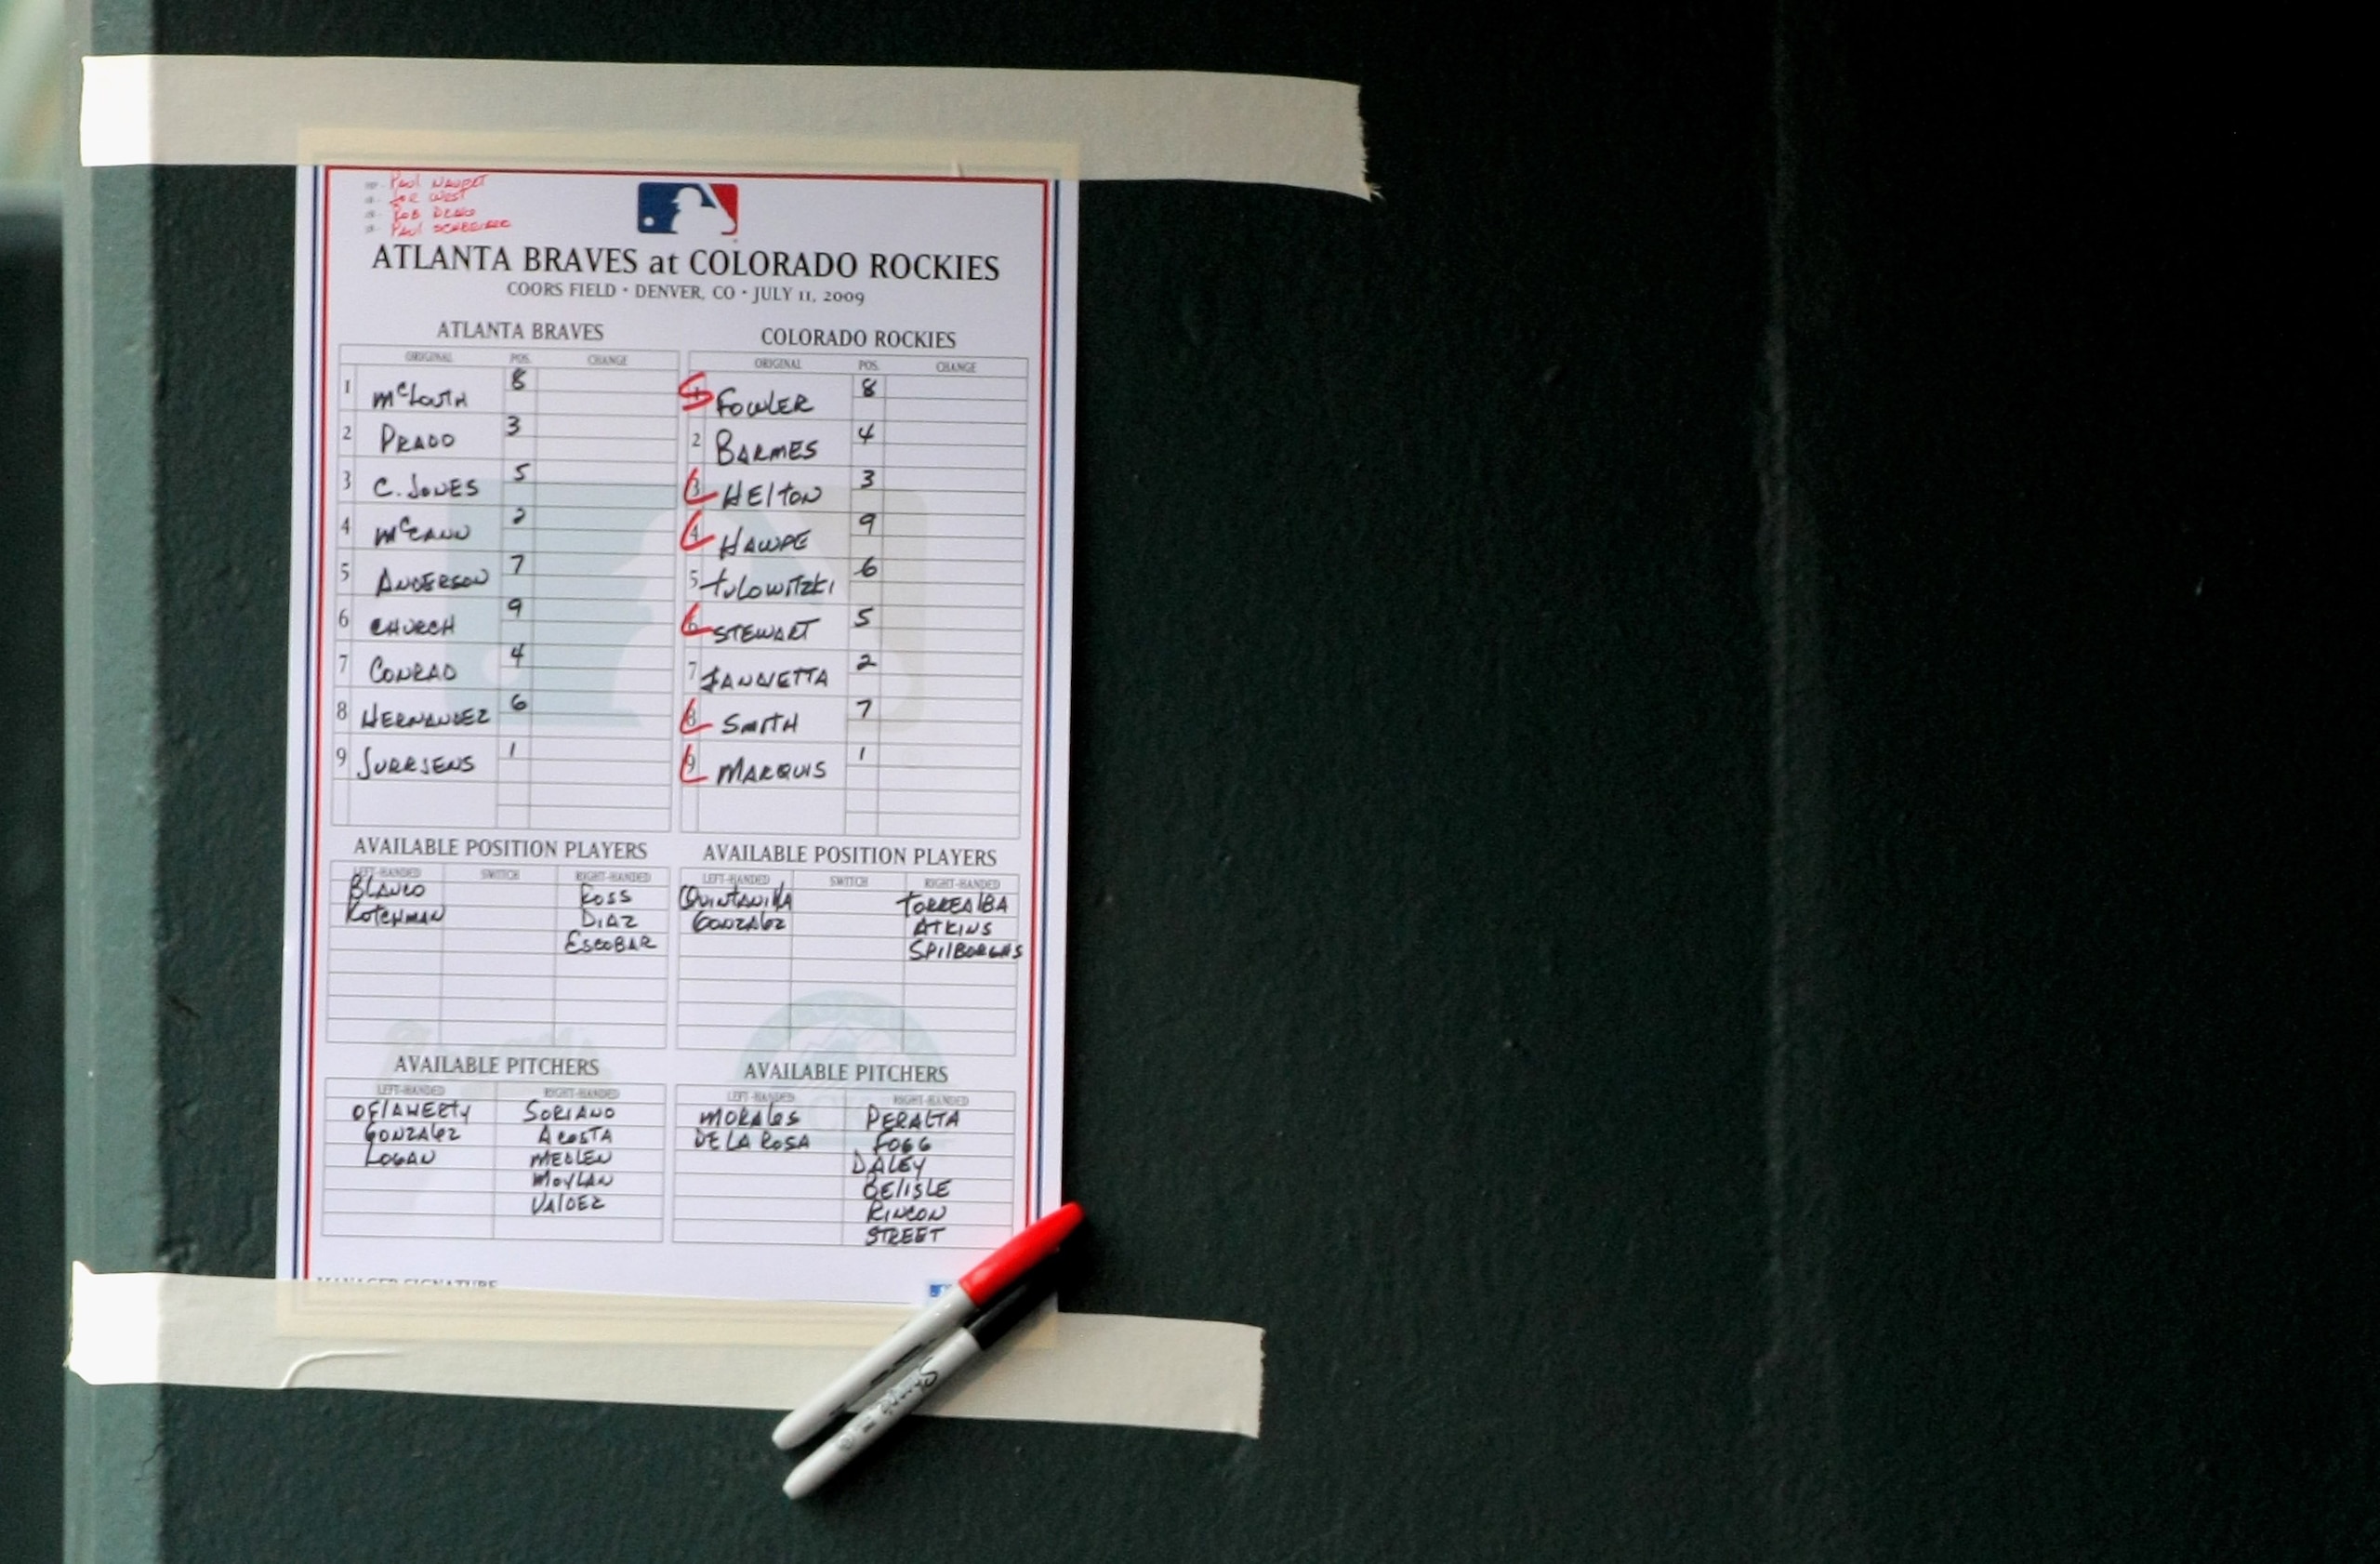 Paul Nauert
Joe West
Rob Drake
Paul Schrieber
ATLANTA BRAVES at COLORADO ROCKIES
COORS FIELD • DENVER, CO • JULY 11, 2009
ATLANTA BRAVES
ORIGINAL POS. CHANGE
1 McLouth 8
2 PRADO 3
3 C. JONES 5
4 McCANN 2
5 ANDERSON 7
6 CHURCH 9
7 CONRAD 4
8 HERNANDEZ 6
9 JURRJENS 1
COLORADO ROCKIES
ORIGINAL POS. CHANGE
S 1 FOWLER 8
2 BARMES 4
L 3 HElTON 3
L 4 HAWPE 9
5 tulowitzki 6
L 6 STEWART 5
7 IANNETTA 2
L 8 SMITH 7
L 9 MARQUIS 1
AVAILABLE POSITION PLAYERS
LEFT-HANDED SWITCH RIGHT-HANDED
BLANCO ROSS
KOTCHMAN DIAZ
ESCOBAR
AVAILABLE POSITION PLAYERS
LEFT-HANDED SWITCH RIGHT-HANDED
QUINTANIllA TORREAlBA
GONZAlEZ ATKINS
SPIlBORGHS
AVAILABLE PITCHERS
LEFT-HANDED RIGHT-HANDED
OFlAHERTY SORIANO
GONZAlEZ ACOSTA
LOGAN MEDLEN
MOYLAN
VAlDEZ
AVAILABLE PITCHERS
LEFT-HANDED RIGHT-HANDED
MORAlES PERALTA
DE LA ROSA FOGG
DALEY
BElISLE
RINCON
STREET
MANAGER SIGNATURE
Sharpie